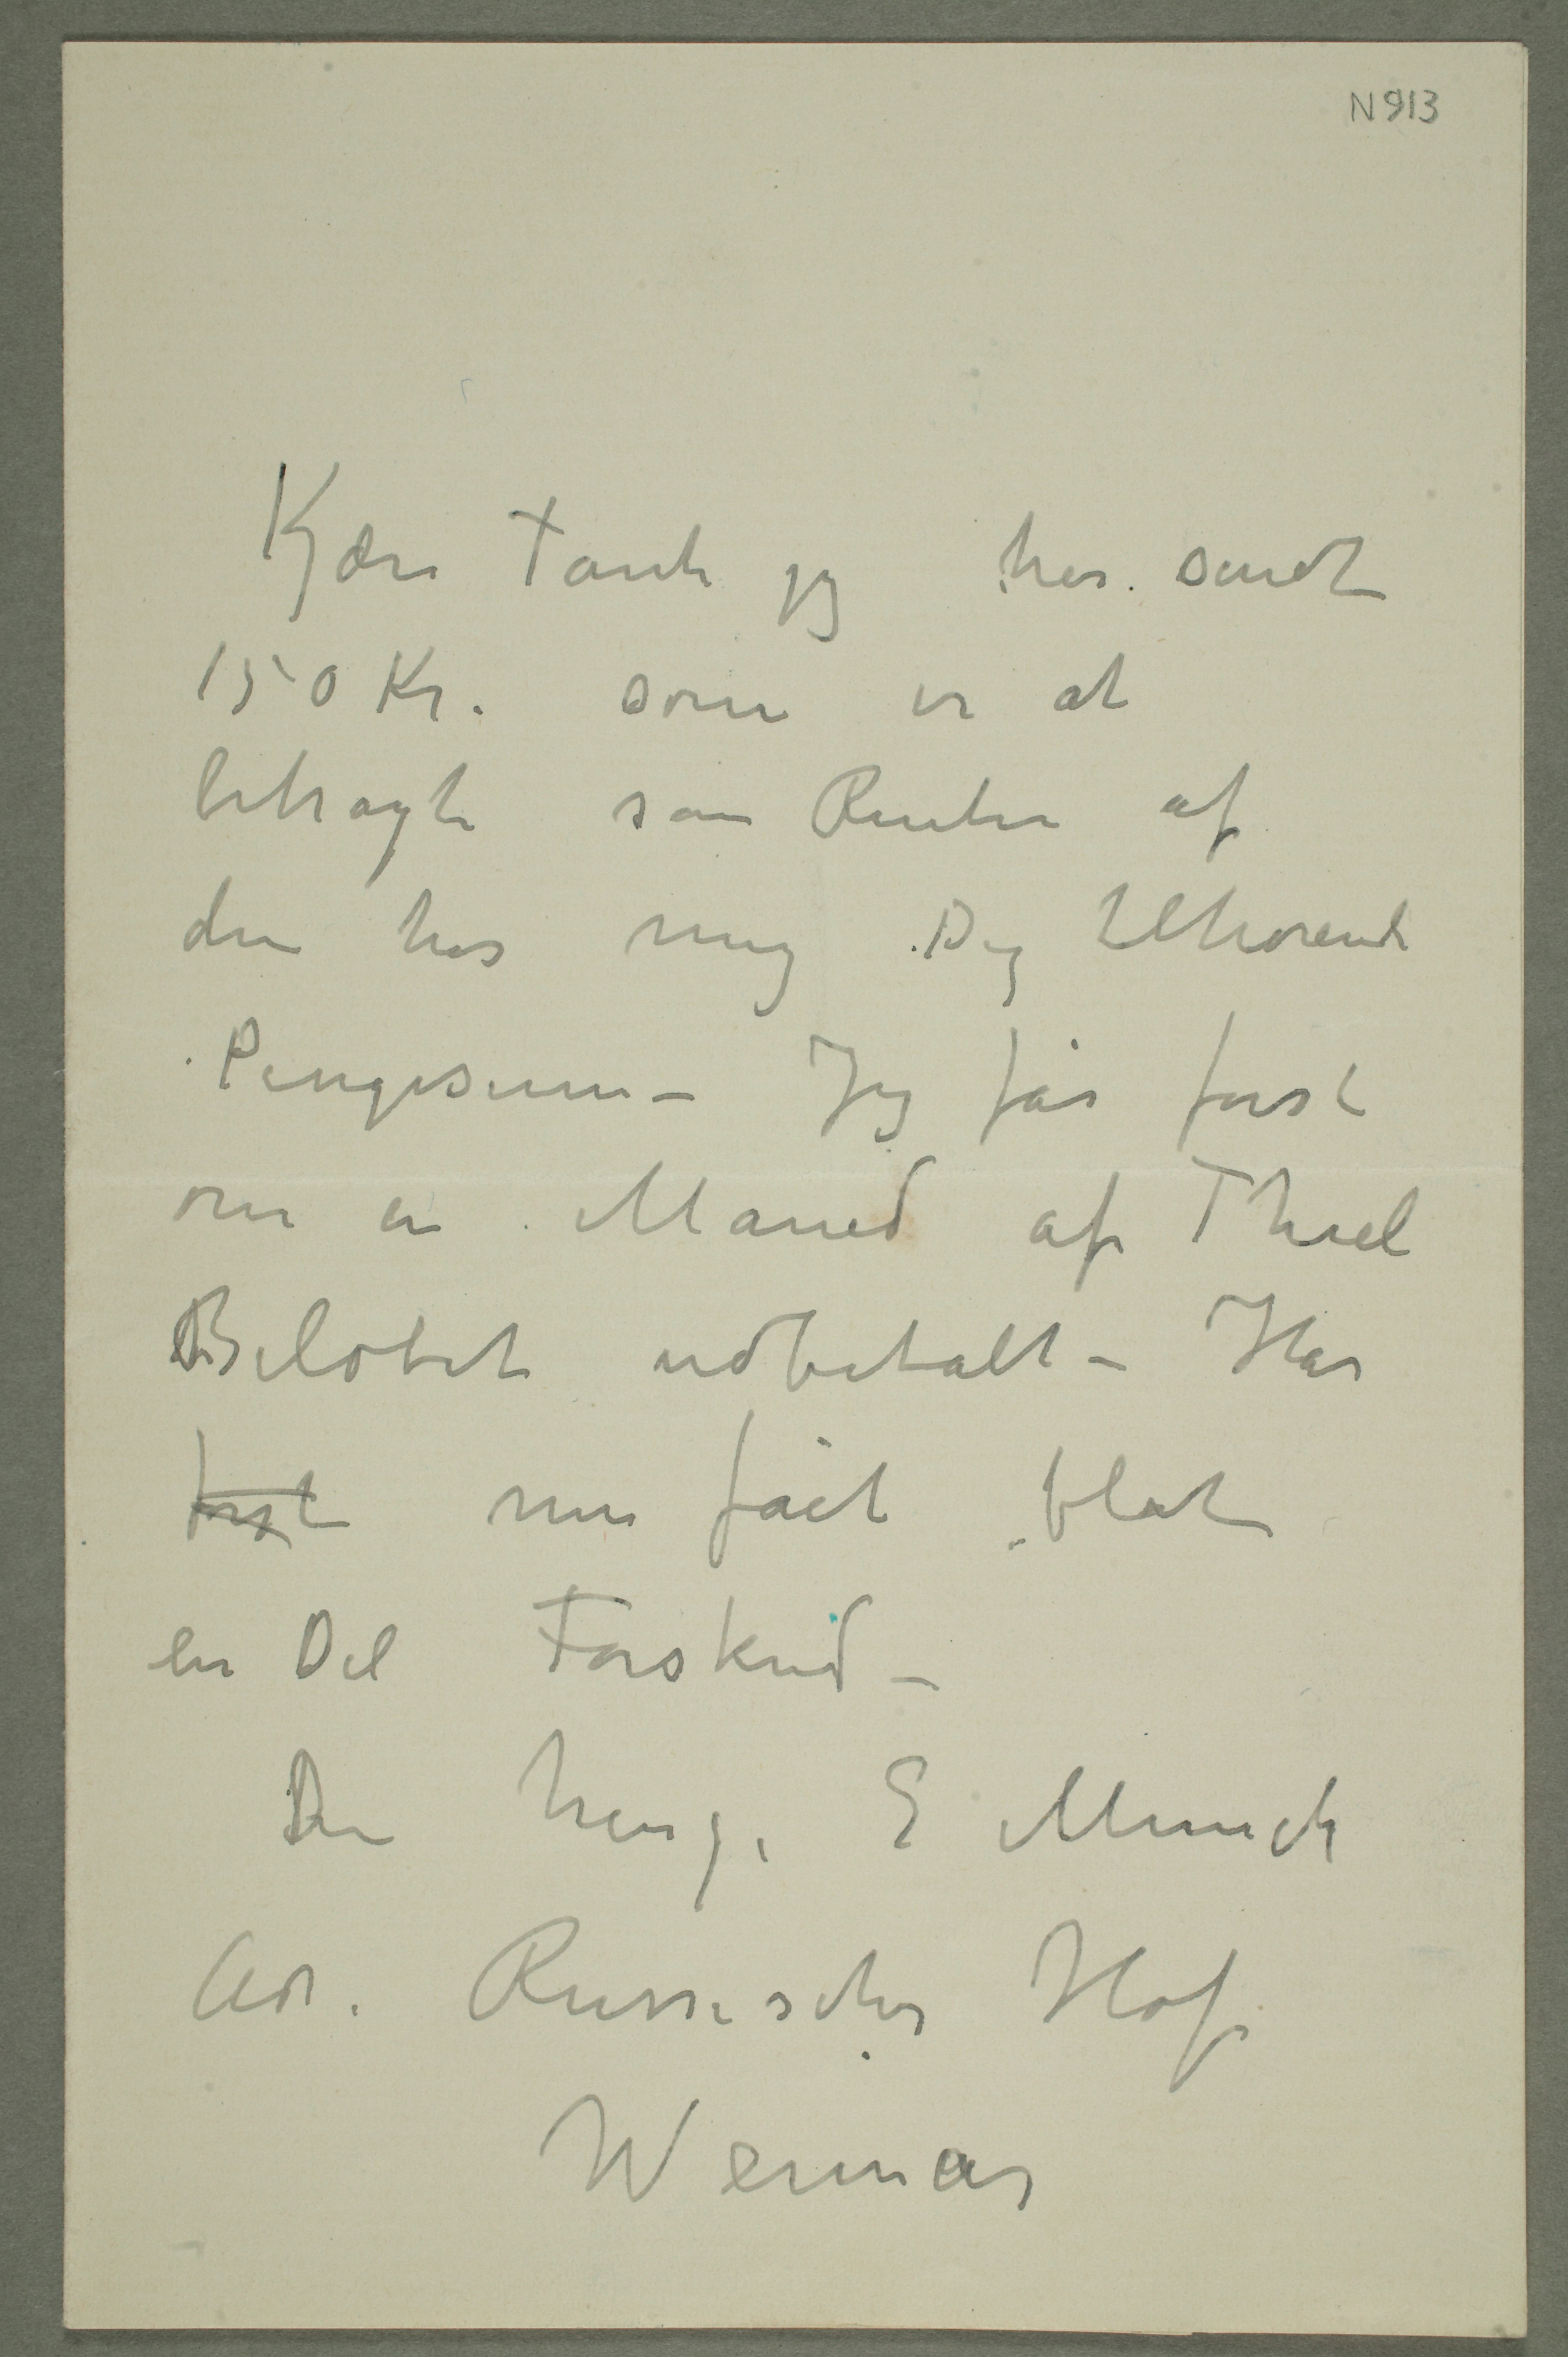 N 913
Kjære Tante jeg har sendt
150 Kr. som er at
betragte som Renter af
den hos mig Dig tilhørende
Pengesum – Jeg får først
om en Maned af Thiel
Beløbet udbetalt – Har
først nu fået blot
en Del Forskud –
Din heng. E Munch
Adr. Russischer Hof
Weimar